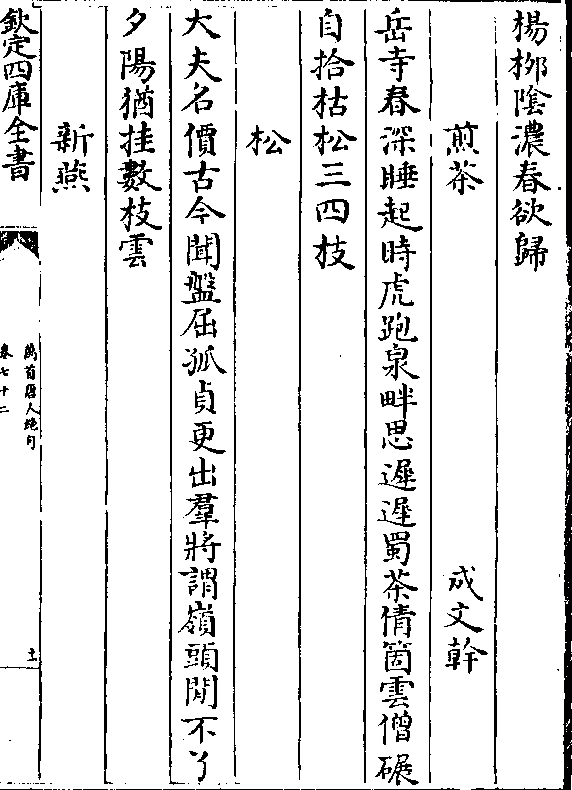 楊栁陰濃春欲歸
煎茶　成文幹
岳寺春深睡起時虎跑泉畔思遲遲蜀茶倩箇雲僧碾
自拾枯松三四枝
松
大夫名價古今聞盤屈孤貞更出羣將謂嶺頭閒不了
夕陽猶挂數枝雲
新燕
欽定四庫全書
萬首唐人絶句
卷七十二
土